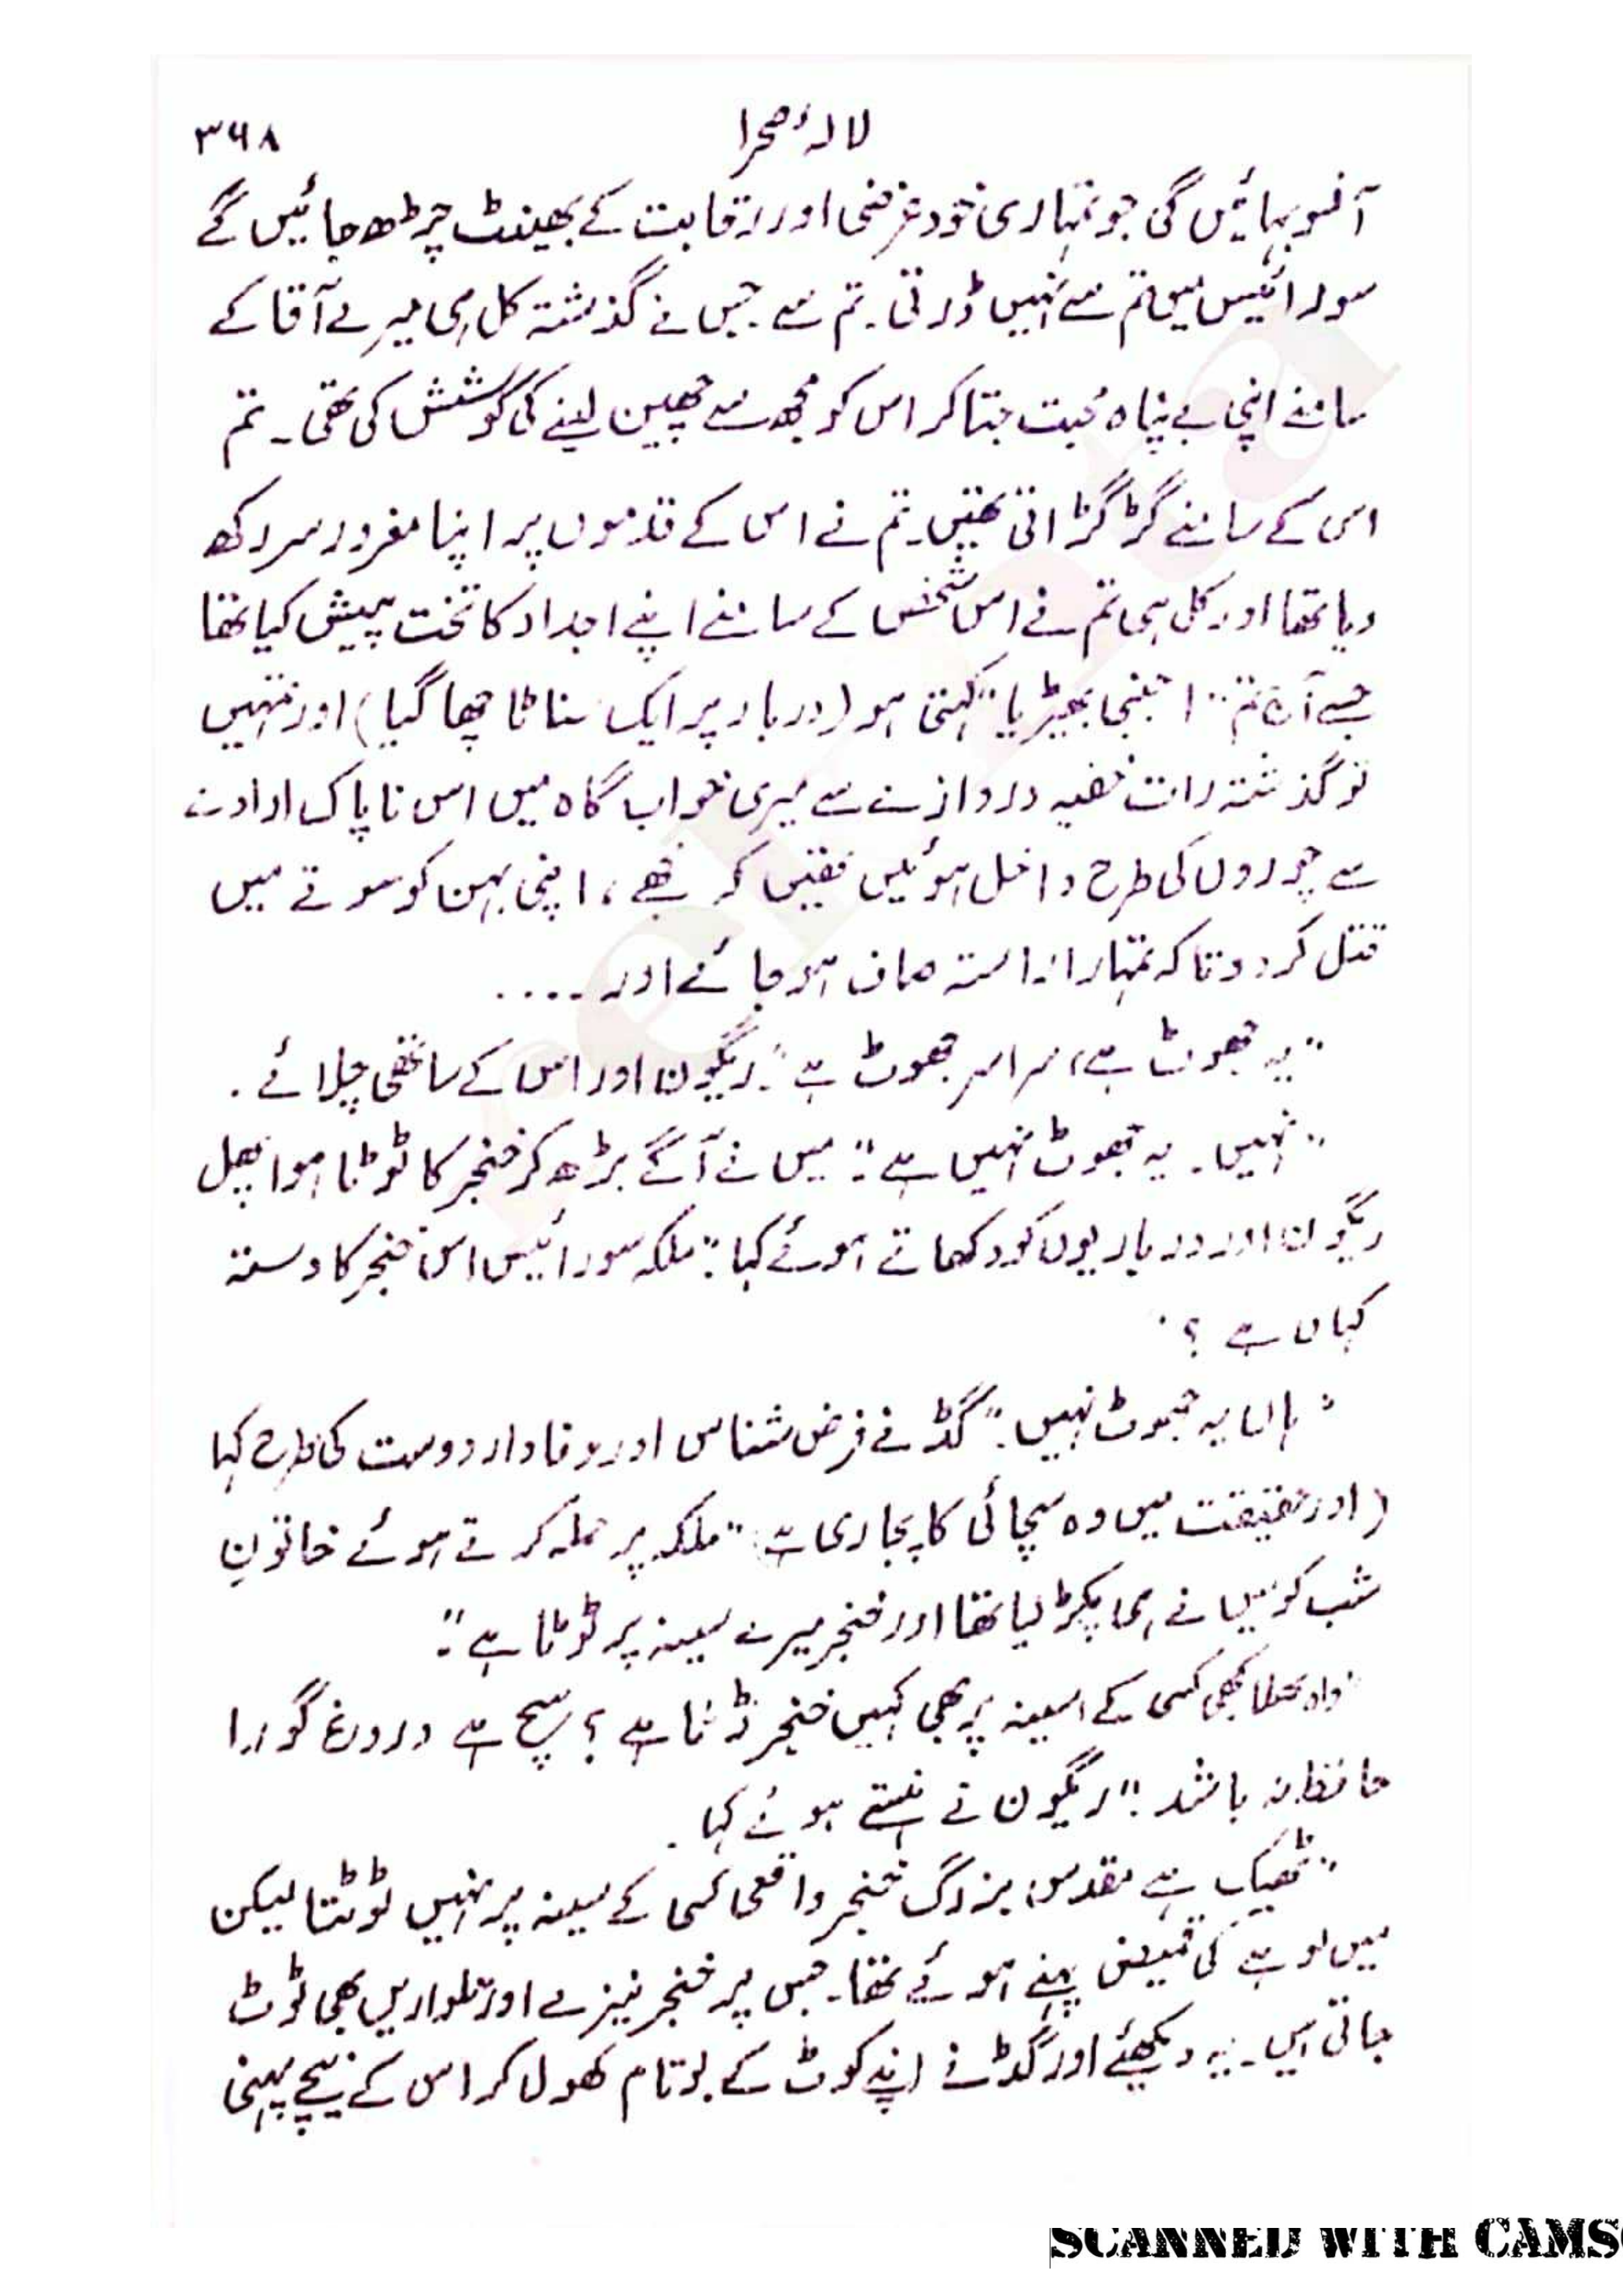 لالۂ صحرا ۳۶۸
آنسو بہائیں گی جو تمہاری خود غرضی اور رقابت کے بھینٹ چڑھ جائیں گے
سورائیس میں تم سے نہیں ڈرتی۔ تم سے جس نے گذشتہ کل ہی میرے آقا کے
سامنے اپنی بے پناہ محبت جتا کر اس کو مجھ سے چھین لینے کی کوشش کی تھی۔ تم
اس کے سامنے گڑگڑاتی تھیں۔ تم نے اس کے قدموں پر اپنا مغرور سر رکھ
دیا تھا اور کل ہی تم نے اس شخص کے سامنے اپنے اجداد کا تخت پیش کیا تھا
جسے آج تم "اجنبی بھیڑیا" کہتی ہو (دربار پر ایک سناٹا چھا گیا) اور تمہیں
تو گذشتہ رات خفیہ دروازے سے میری خواب گاہ میں اس ناپاک ارادے
سے چوروں کی طرح داخل ہوئیں تھیں کہ مجھے، اپنی بہن کو سوتے میں
قتل کر دو تا کہ تمہارا راستہ صاف ہو جائے اور ....
"یہ جھوٹ ہے، سراسر جھوٹ ہے"۔ ریگون اور اس کے ساتھی چلائے۔
"نہیں۔ یہ جھوٹ نہیں ہے"۔ میں نے آگے بڑھ کر خنجر کا ٹوٹا ہوا پھل
ریگون اور درباریوں کو دکھاتے ہوئے کہا: "ملکہ سورائیس اس خنجر کا دستہ
کہاں ہے؟"
"ہاں یہ جھوٹ نہیں۔" گڈ نے فرض شناس اور وفادار دوست کی طرح کہا
(اور حقیقت میں وہ سچائی کا پجاری ہے) "ملکہ پر حملہ کرتے ہوئے خاتونِ
شب کو میں نے ہی پکڑ لیا تھا اور خنجر میرے سینہ پر ٹوٹا ہے"۔
"واہ بھلا کبھی کسی کے سینہ پر بھی کہیں خنجر ٹوٹا ہے؟ سچ ہے دروغ گو را
حافظہ نہ باشد۔" ریگون نے ہنستے ہوئے کہا۔
"ٹھیک ہے مقدس بزرگ خنجر واقعی کسی کے سینہ پر نہیں ٹوٹتا لیکن
میں لوہے کی قمیض پہنے ہوئے تھا۔ جس پر خنجر نیزے اور تلواریں بھی ٹوٹ
جاتی ہیں۔ یہ دیکھئے اور گڈ نے اپنے کوٹ کے بوتام کھول کر اس کے نیچے پہنی
SCANNED WITH CAMS